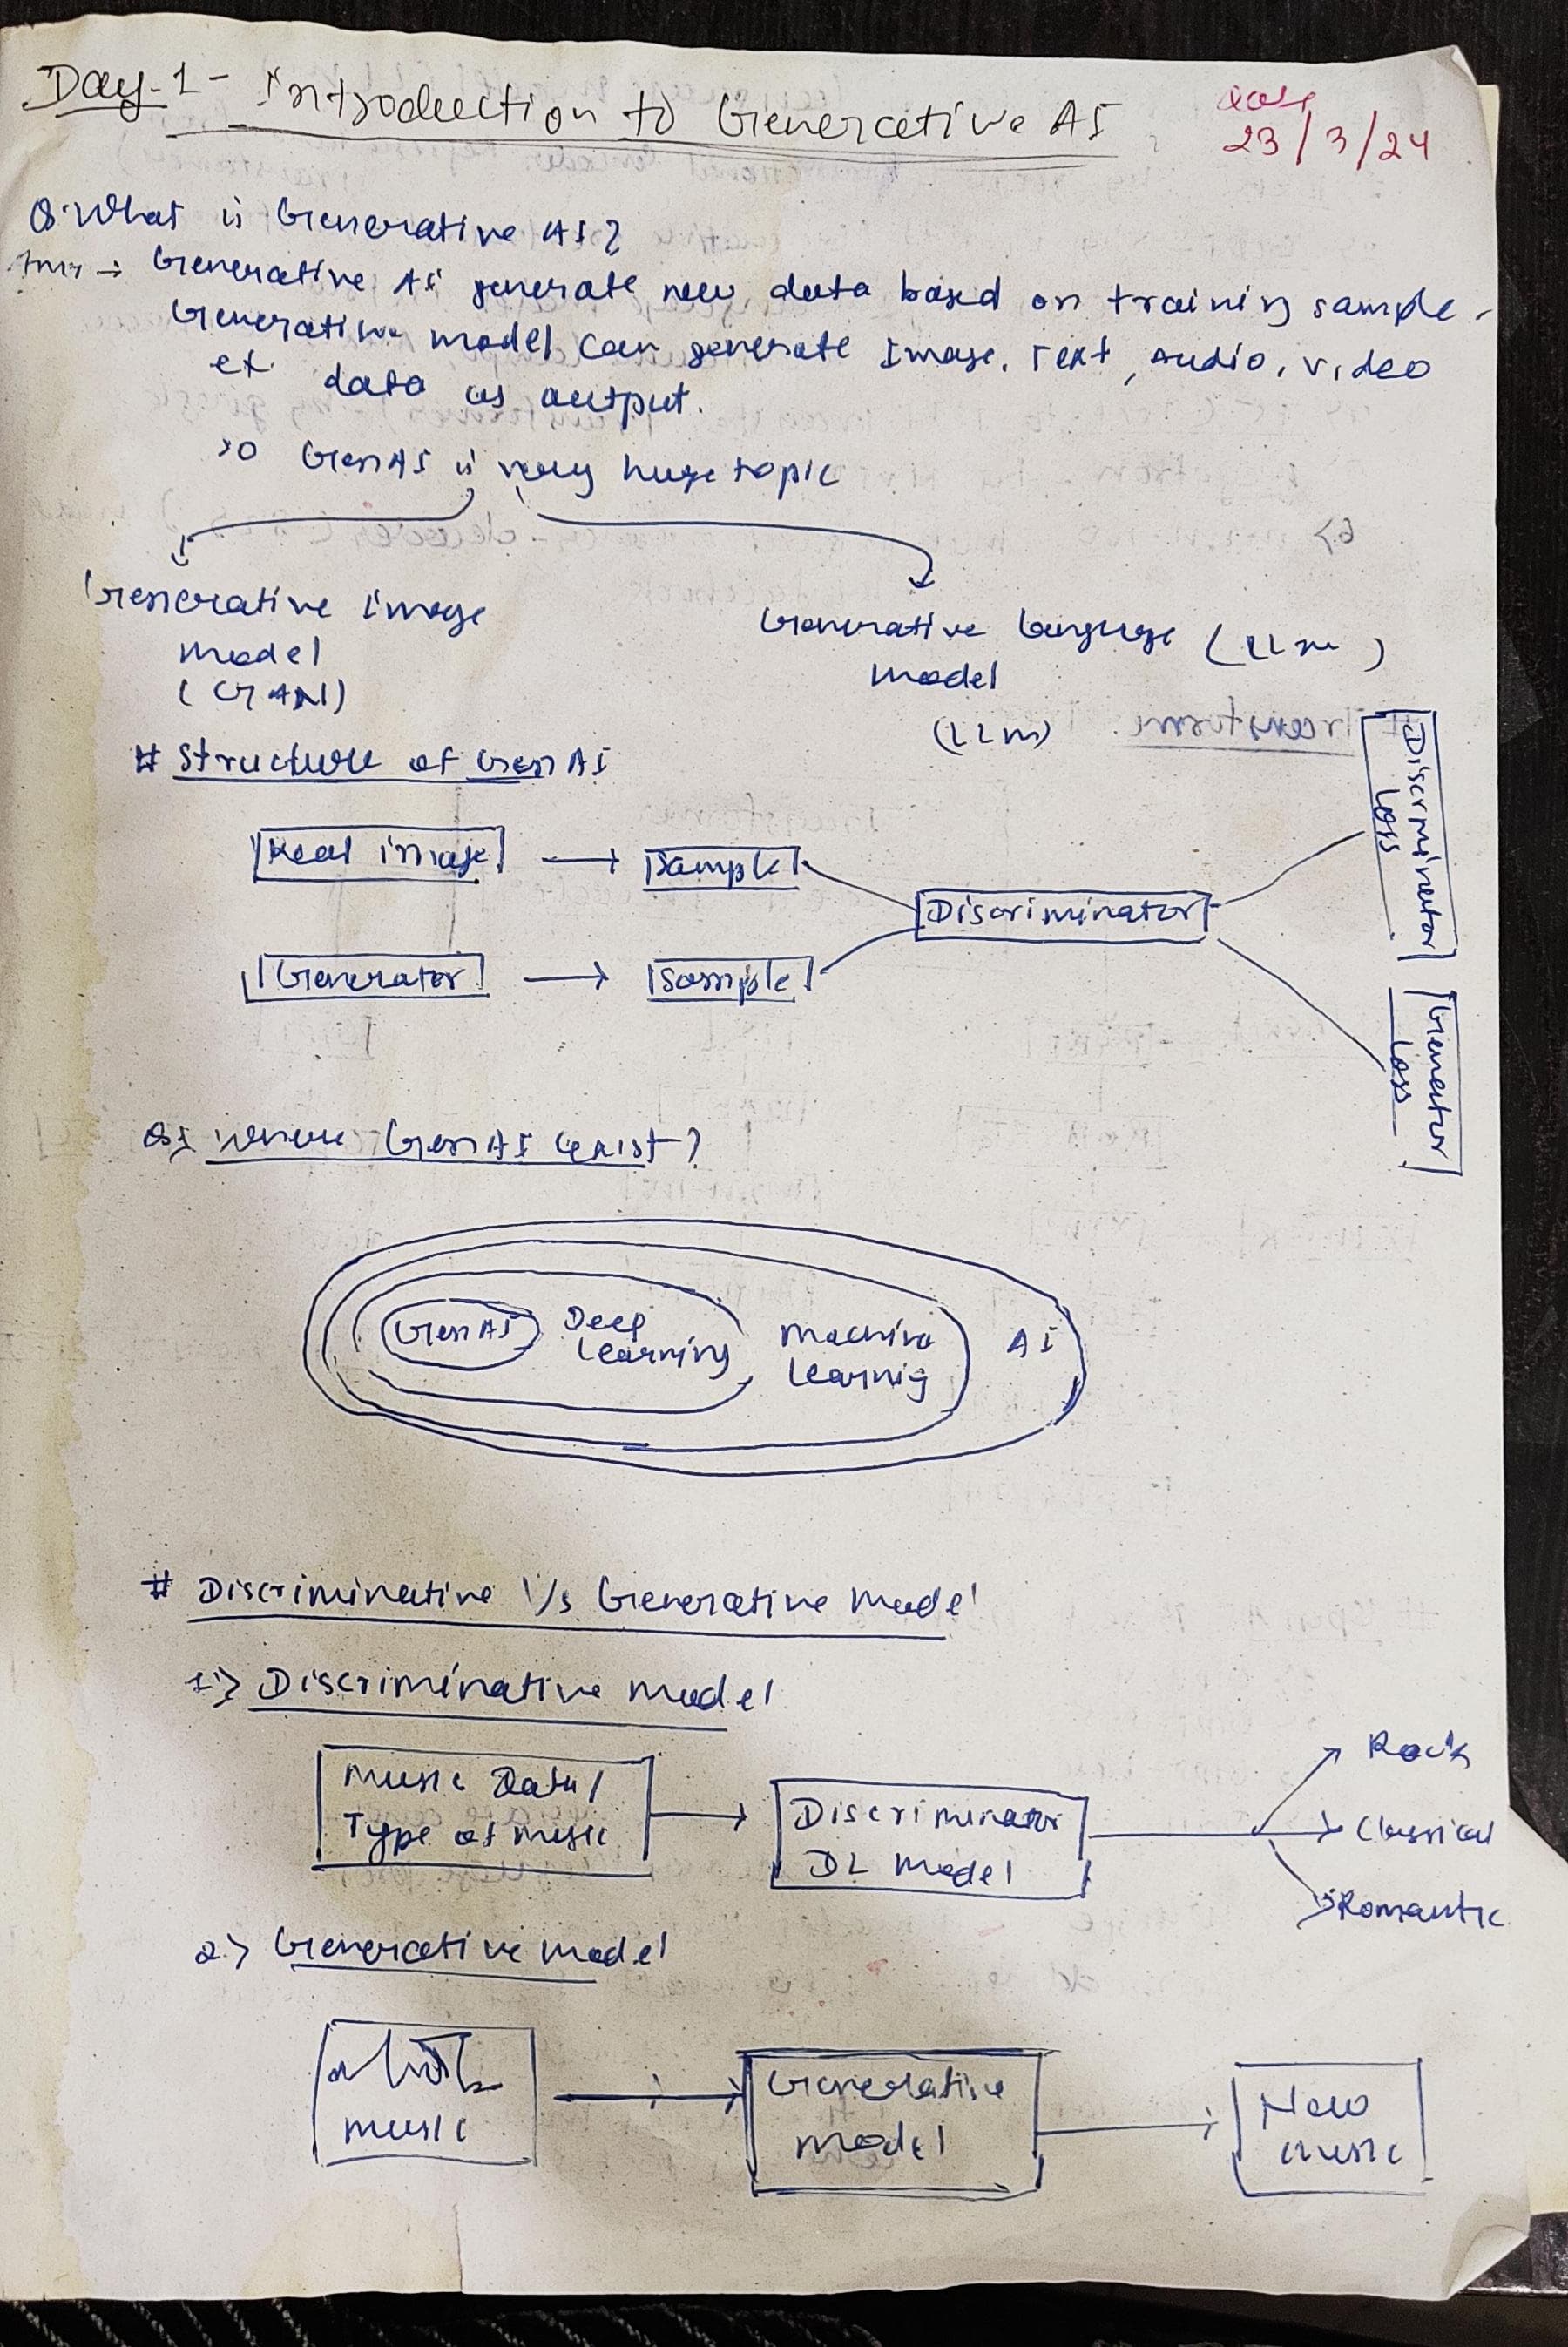 Day-1 - Introduction to Generative AI
Date
23/3/24
Q. What is Generative AI?
Ans → Generative AI generate new data based on training sample.
Generative model can generate Image, Text, Audio, video
data as output.
so GenAI is very huge topic
Generative Image
model
(GAN)
Generative language (LLM)
model
(LLM)
# Structure of Gen AI
Real image → Sample
Discriminator
Generator → Sample
Discriminator
Loss
Generator
Loss
Q. Where GenAI exist?
Gen AI
Deep
Learning
Machine
Learnig
AI
# Discriminative V/s Generative Model
1.> Discriminative model
Music Data/
Type of music
Discriminator
DL Model
Rock
Classical
Romantic
2.> Generative model
music
Generative
model
New
music